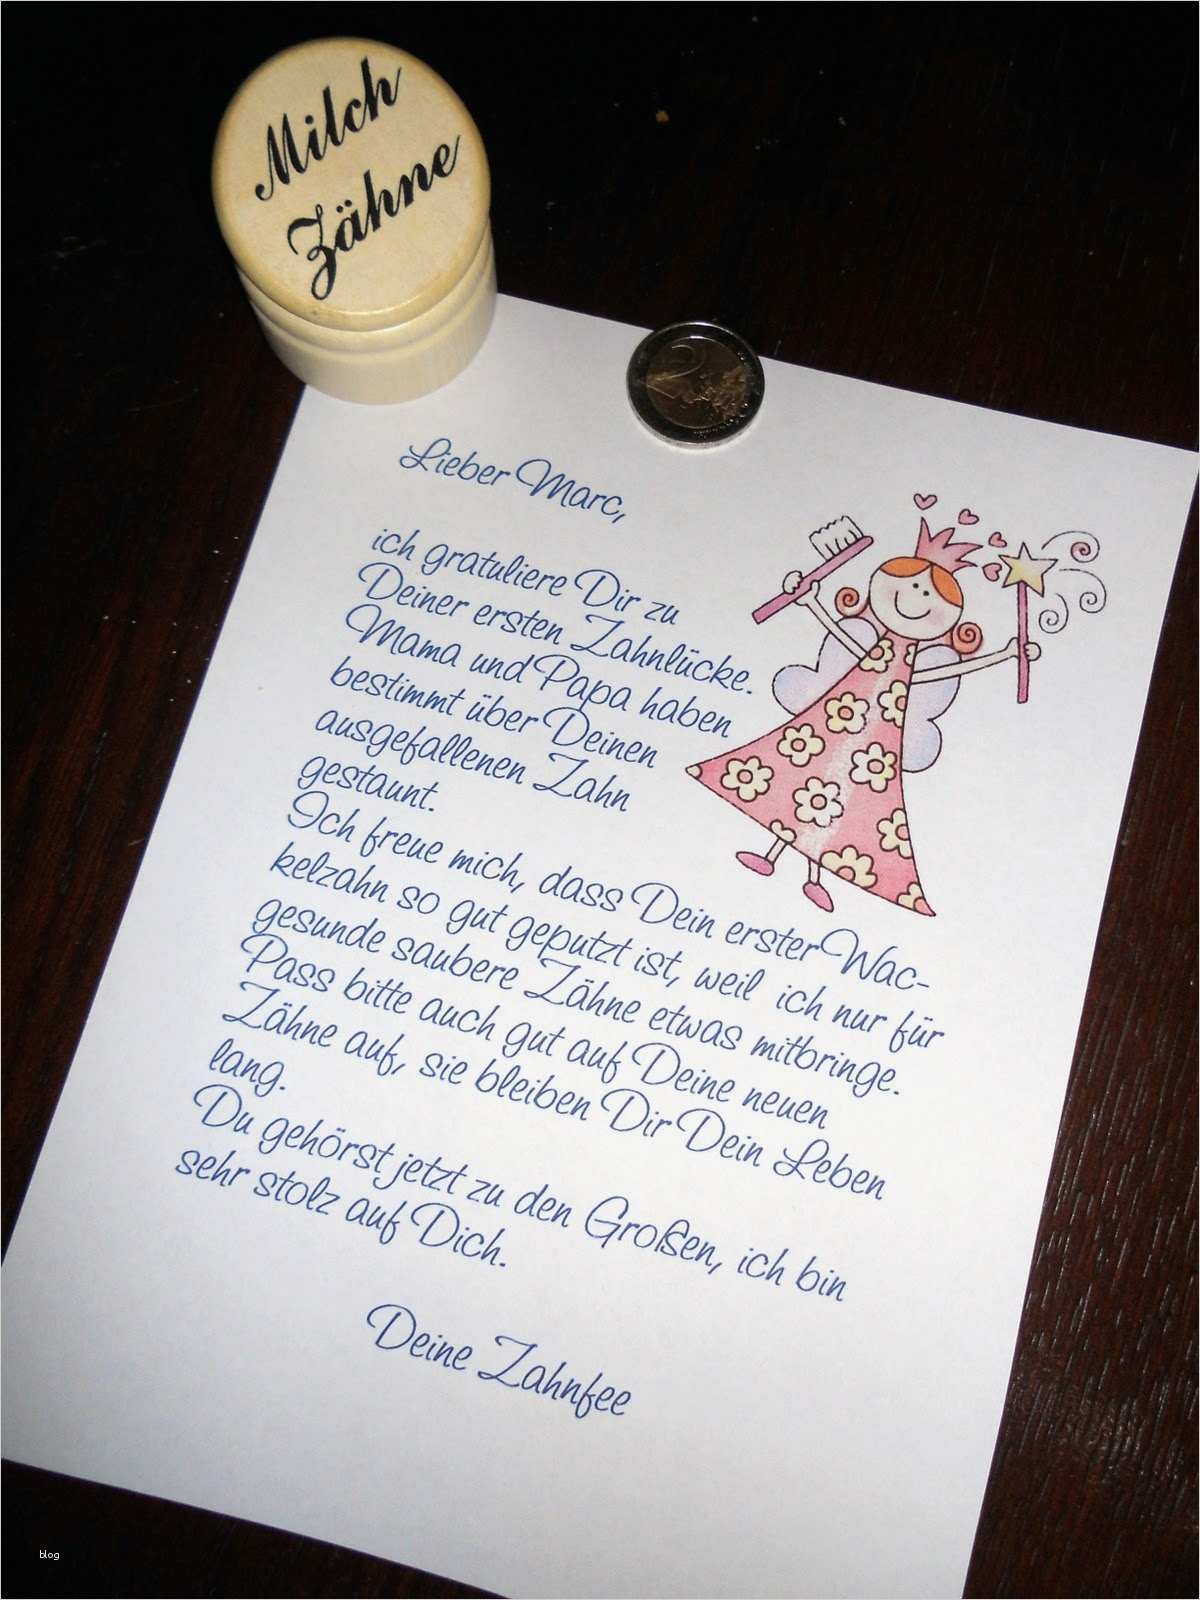 Milch
Zähne
2
Lieber Marc,
ich gratuliere Dir zu
Deiner ersten Zahnlücke.
Mama und Papa haben
bestimmt über Deinen
ausgefallenen Zahn
gestaunt.
Ich freue mich, dass Dein erster Wac-
kelzahn so gut geputzt ist, weil ich nur für
gesunde saubere Zähne etwas mitbringe.
Pass bitte auch gut auf Deine neuen
Zähne auf, sie bleiben Dir Dein Leben
lang.
Du gehörst jetzt zu den Großen, ich bin
sehr stolz auf Dich.
Deine Zahnfee
blog